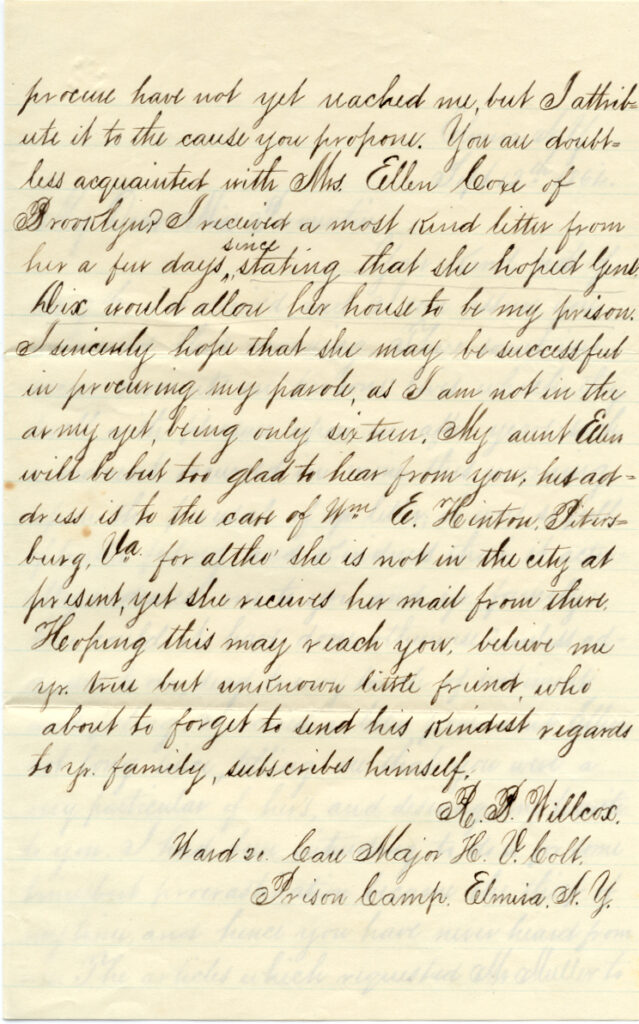 procure have not yet reached me, but I attrib-
ute it to the cause you propone. You are doubt-
less acquainted with Mrs. Ellen Coxe of
Brooklyn? I received a most kind letter from
her a few days since stating that she hoped Genl.
Dix would allow her house to be my prison.
I sincerely hope that she may be successful
in procuring my parole, as I am not in the
army yet, being only sixteen. My aunt Ellen
will be but too glad to hear from you, her ad-
dress is to the care of Wm E. Hinton, Peters-
burg, Va. for altho' she is not in the city at
present, yet she receives her mail from there.
Hoping this may reach you, believe me
yr. true but unknown little friend, who
about to forget to send his kindest regards
to yr. family, subscribes himself,
R. B. Willcox.
Ward 20. Care Major H. V. Colt.
Prison Camp. Elmira, N. Y.